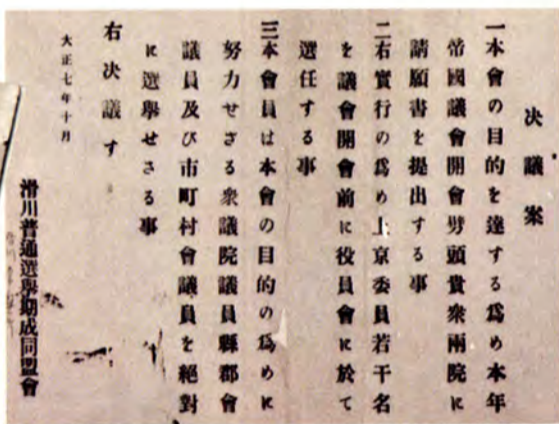 決議案
一本會の目的を達する爲め本年
帝國議會開會劈頭貴衆兩院に
請願書を提出する事
二右實行の爲め上京委員若干名
を議會開會前に役員會に於て
選任する事
三本會員は本會の目的の爲めに
努力せざる衆議院議員縣郡會
議員及び市町村會議員を絕對
に選擧せざる事
右決議す
大正七年十月
滑川普通選擧期成同盟會